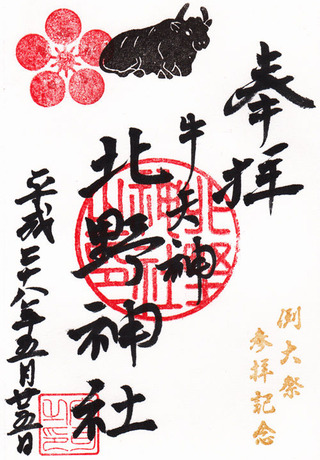 奉拝
牛天神
北野神社
平成二十八年五月廿五日
例大祭
参拝記念
北野神社之印